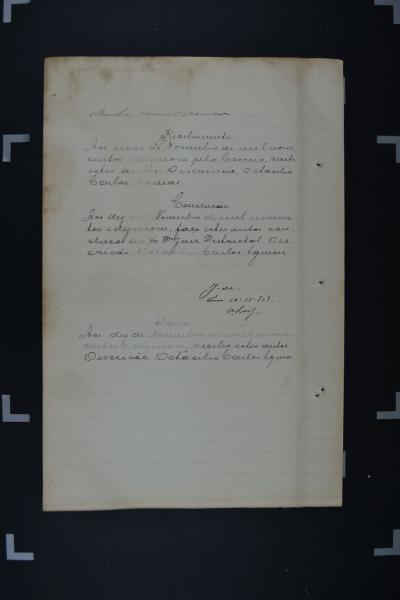 Recebimento
Aos nove de Novembro de mil nove
centos e dezenove pelo Correio, recebi
estes autos. O escrivão, Octacilio
Carlos Aguiar
Conclusão
Aos dez de Novembro de mil novecen
tos e dezenove, faço estes autos con
clusos ao Dr Juiz Districtal. O es
crivão, Octacilio Carlos Aguiar
Data
Aos dez de Novembro de mil nove
centos e dezenove, recebi estes autos.
O escrivão, Octacilio Carlos Aguiar